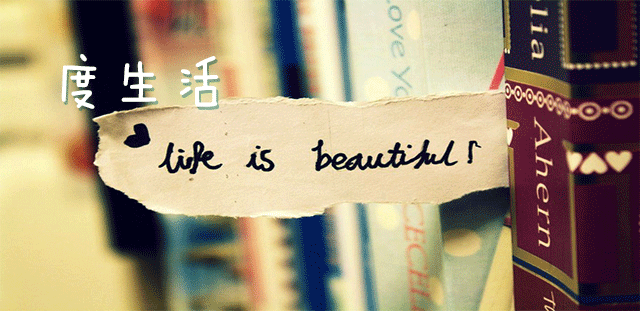 度生活
life is beautiful!
Love Yo
CECEL
lia
Ahern